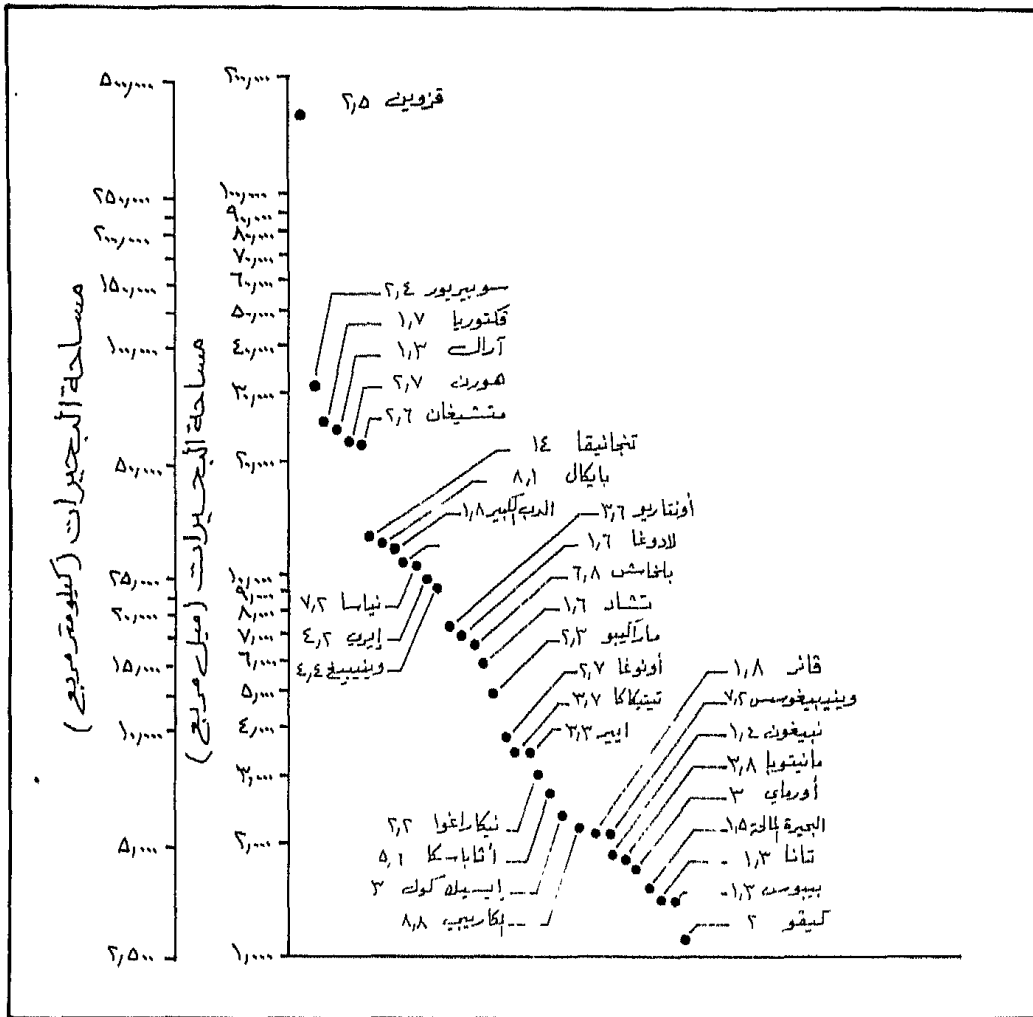 ٥٠٠,٠٠٠
٢٥٠,٠٠٠
٢٠٠,٠٠٠
١٥٠,٠٠٠
١٠٠,٠٠٠
٥٠,٠٠٠
٢٥,٠٠٠
٢٠,٠٠٠
١٥,٠٠٠
١٠,٠٠٠
٥,٠٠٠
٢,٥٠٠
مساحة البحيرات (كيلومتر مربع)
٢٠٠,٠٠٠
١٠٠,٠٠٠
٩٠,٠٠٠
٨٠,٠٠٠
٧٠,٠٠٠
٦٠,٠٠٠
٥٠,٠٠٠
٤٠,٠٠٠
٣٠,٠٠٠
٢٠,٠٠٠
١٠,٠٠٠
٩,٠٠٠
٨,٠٠٠
٧,٠٠٠
٦,٠٠٠
٥,٠٠٠
٤,٠٠٠
٣,٠٠٠
٢,٠٠٠
١,٠٠٠
مساحة البحيرات (ميل مربع)
قزوين ٢,٥
سوبيريور ٢,٤
فكتوريا ١,٧
آرال ١,٣
هورن ٢,٧
متشيغان ٢,٦
تنجانيقا ١٤
بايكال ٨,١
الدب الكبير ١,٨
نياسا ٧,٢
إيري ٤,٢
وينيبيغ ٤,٤
أونتاريو ٣,٦
لادوغا ١,٦
بلخاش ٦,٨
تشاد ١,٦
ماراليبو ٢,٣
أونوغا ٢,٧
تيتيكاكا ٣,٧
ايير ٣,٣
نيكاراغوا ٢,٢
أثاباسكا ٥,١
إيسيك كول ٣
٨,٨
قانر ١,٨
وينيبيغوسس ٧,٢
نبيغون ١,٤
مانيتوبا ٣,٨
أورماي ٣
البحيرة المالحة ١,٥
تانا ١,٣
بيبوس ١,٣
كيفو ٢